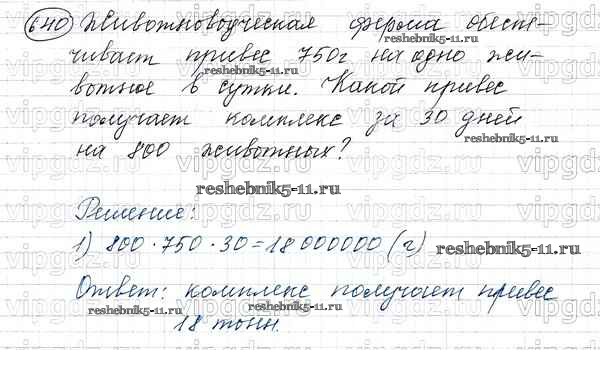 640 Животноводческая ферма обеспе-
чивает привес 750г на одно жи-
reshebnik5-11.ru
вотное в сутки. Какой привес
получает комплекс за 30 дней
reshebnik5-11.ru
на 800 животных?
reshebnik5-11.ru
Решение:
1) 800 · 750 · 30 = 18 000000 (г)
reshebnik5-11.ru
Ответ: комплекс получает привес
reshebnik5-11.ru
reshebnik5-11.ru
18 тонн.
vipgdz.ru